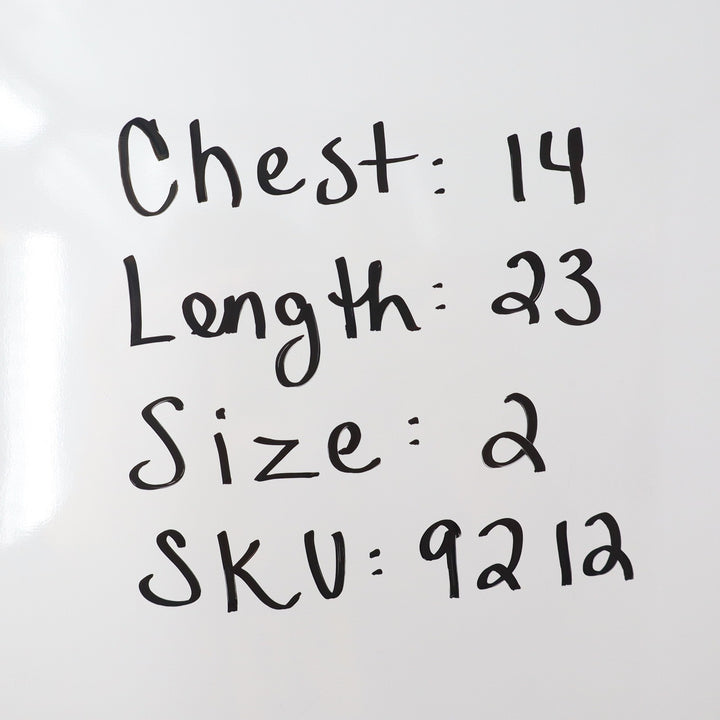 Chest: 14
Length: 23
Size: 2
SKU: 9212